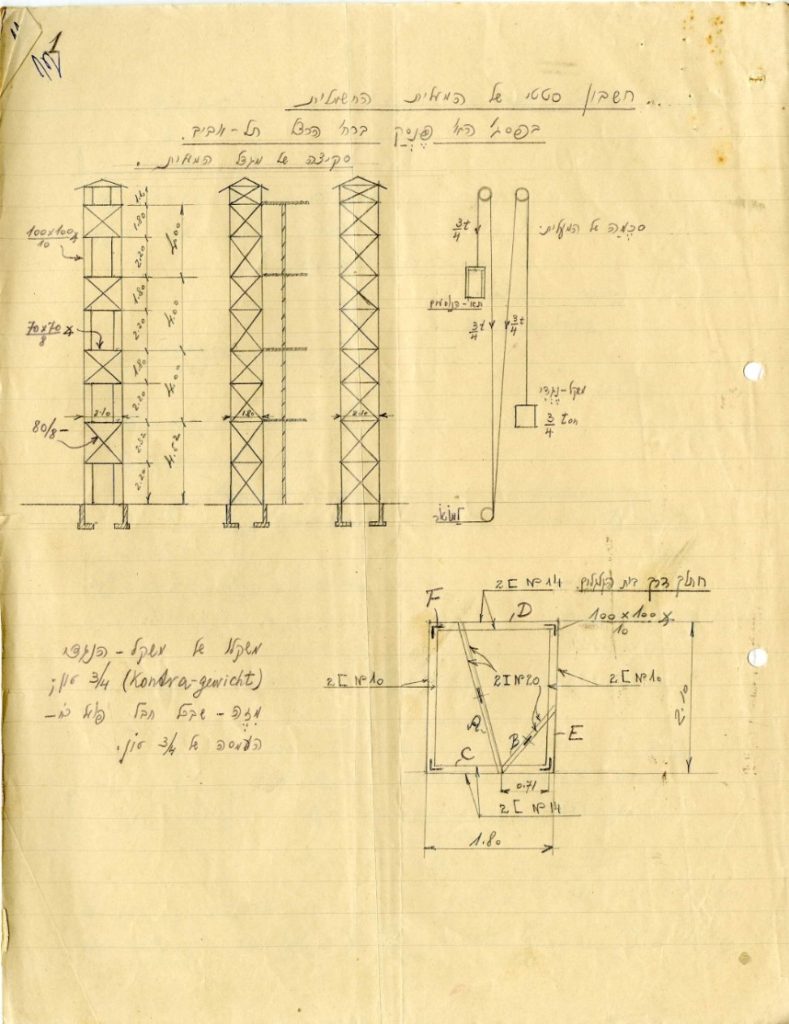 חשבון סטטי של המעלית החשמלית
בפסג' הא' פנסק ברח' הרצל תל-אביב.
סקיצה של מגדל המעלית.
100x100x
10
70x70x
8
80/8-
1.80
2.20
4.00
1.80
2.20
4.00
1.80
2.20
4.00
2.32
2.20
4.52
2.10
1.80
2.10
סכמה של המעלית:
3/4 t
תא-הנוסעים
3/4 t
3/4 t
משקל-נגדי
3/4 ton
חתך דרך בית הגלגלים
2 [ № 14
F
D
100x100x
10
2 [ № 10
2 I № 20
2 [ № 10
A
B
E
C
2.10
0.71
2 [ № 14
1.80
משקלו של משקל-הנגדי
(Kontra-gewicht) 3/4 טון;
מזה - שבכל חבל פועל כח-
העמסה של 3/4 טון.